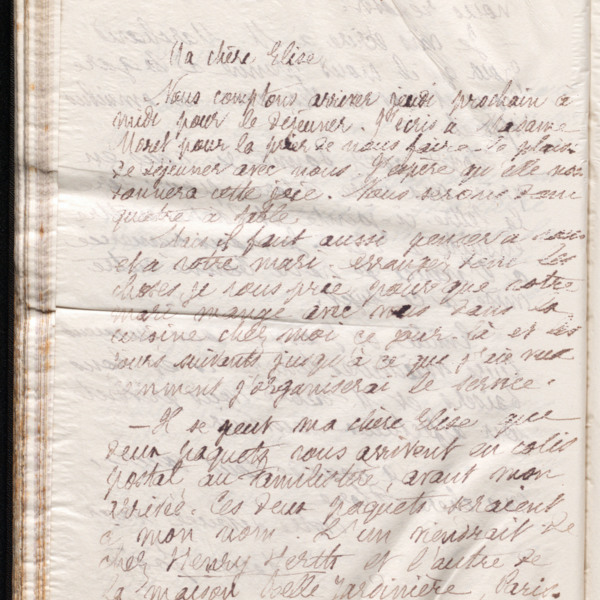 Ma chère Elise
Nous comptons arriver jeudi prochain à
midi pour le déjeuner. J'écris à Madame
Moret pour la prier de nous faire le plaisir
de déjeuner avec nous. J'espère qu'elle nous
donnera cette joie. Nous serons donc
quatre à table.
Mais il faut aussi penser à vous
et à votre mari, arrangez donc les
choses je vous prie pour que votre
mari mange avec vous dans la
cuisine chez moi ce jour-là et les
jours suivants jusqu'à ce que j'aie vu
comment j'organiserai le service.
— Il se peut ma chère Elise que
deux paquets vous arrivent en colis
postal au Familistère, avant mon
arrivée. Ces deux paquets seraient
à mon nom. L'un viendrait de
chez Henry et l'autre de
la maison Belle Jardinière, Paris.